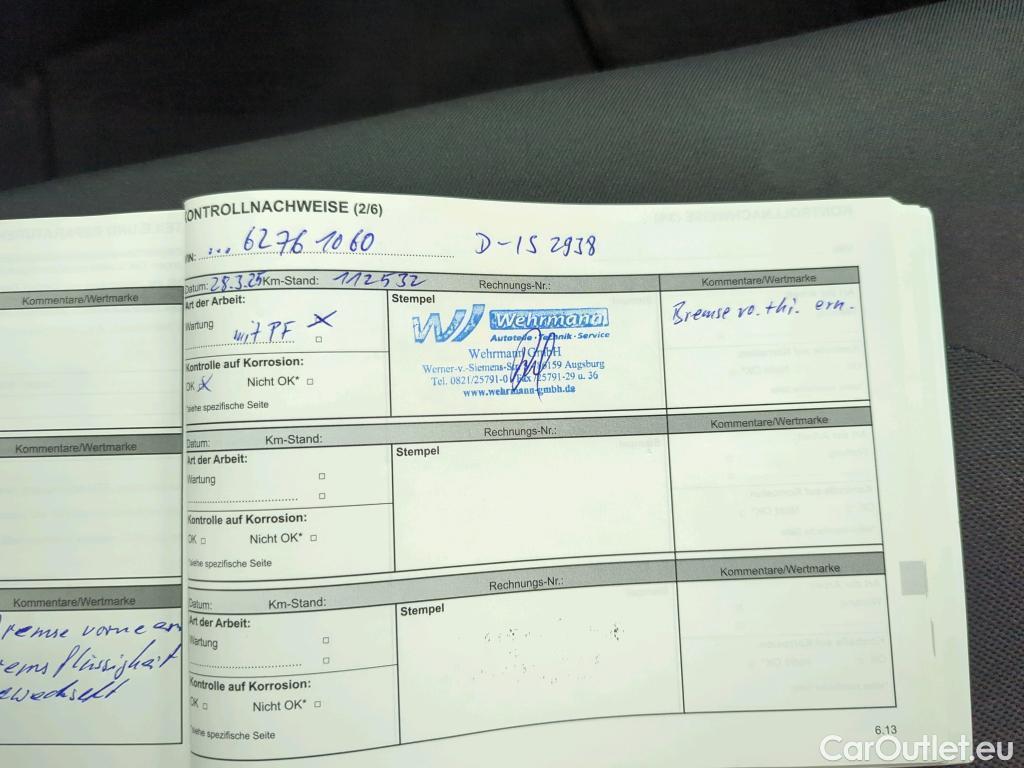 KONTROLLNACHWEISE (2/6)
VIN: ... 62761060 D-IS 2938
Kommentare/Wertmarke
Datum: 28.3.25 Km-Stand: 112532 Rechnungs-Nr.: Kommentare/Wertmarke
Art der Arbeit:
Wartung
mit PF
Stempel
Wehrmann
Autoteile · Technik · Service
Wehrmann GmbH
Werner-v.-Siemens-Str. 86159 Augsburg
Tel. 0821/25791-0 Fax 25791-29 u. 36
www.wehrmann-gmbh.de
Bremse vo. + hi. ern.
Kontrolle auf Korrosion:
OK Nicht OK*
*siehe spezifische Seite
Kommentare/Wertmarke
Datum: Km-Stand: Rechnungs-Nr.: Kommentare/Wertmarke
Art der Arbeit:
Wartung
Stempel
Kontrolle auf Korrosion:
OK Nicht OK*
*siehe spezifische Seite
Kommentare/Wertmarke
Bremse vorne
Bremsflüssigkeit
gewechselt
Datum: Km-Stand: Rechnungs-Nr.: Kommentare/Wertmarke
Art der Arbeit:
Wartung
Stempel
Kontrolle auf Korrosion:
OK Nicht OK*
*siehe spezifische Seite
6.13
CarOutlet.eu